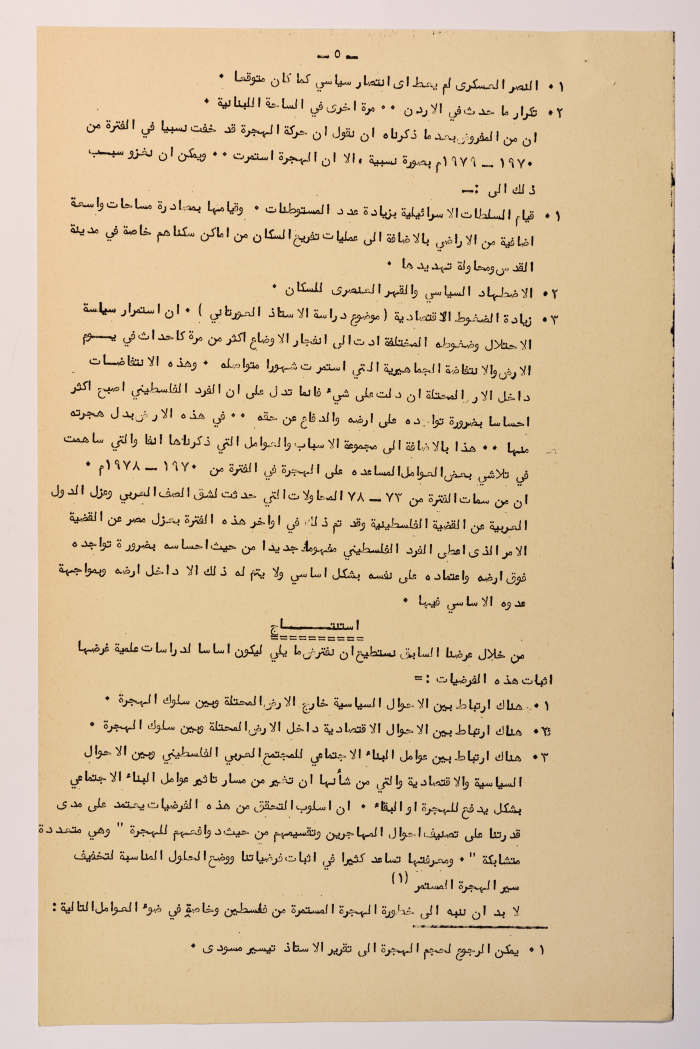 ــ ٥ ــ
١ ٠ النصر العسكرى لم يعط اى انتصار سياسي كما كان متوقعا ٠
٢ ٠ تكرار ما حدث في الاردن ٠٠ مرة اخرى في الساحة اللبنانية ٠
ان من المفروض بعد ما ذكرناه ان نقول ان حركة الهجرة قد خفت نسبيا في الفترة من
١٩٧٠ ــ ١٩٧٩م بصورة نسبية ، الا ان الهجرة استمرت ٠٠ ويمكن ان نعزو سبــب
ذلك الى :ــ
١ ٠ قيام السلطات الاسرائيلية بزيادة عدد المستوطنات ٠ وقيامها بمصادرة مساحات واسعة
اضافية من الاراضي بالاضافة الى عمليات تفريغ السكان من اماكن سكناهم خاصة في مدينة
القدس ومحاولة تهديدها ٠
٢ ٠ الاضطهاد السياسي والقهر العنصرى للسكان ٠
٣ ٠ زيادة الضغوط الاقتصادية ( موضوع دراسة الاستاذ العورتاني ) ٠ ان استمرار سياسة
الاحتلال وضغوطه المختلفة ادت الى انفجار الاوضاع اكثر من مرة كاحداث في يــــوم
الارض والانتفاضة الجماهيرية التي استمرت شهورا متواصله ٠ وهذه الانتفاضــات
داخل الار المحتلة ان دلت على شيء فانما تدل على ان الفرد الفلسطيني اصبح اكثر
احساسا بضرورة تواجده على ارضه والدفاع عن حقه ٠٠ في هذه الارض بدل هجرته
منها ٠٠ هذا بالاضافة الى مجموعة الاسباب والعوامل التي ذكرناها انفا والتي ساهمت
في تلاشي بعض العوامل المساعده على الهجرة في الفترة من ١٩٧٠ ــ ١٩٧٨م ٠
ان من سمات الفترة من ٧٣ ــ ٧٨ المحاولات التي حدثت لشق الصف العربي وعزل الدول
العربية عن القضية الفلسطينية وقد تم ذلك في اواخر هذه الفترة بعزل مصر عن القضية
الامر الذى اعطى الفرد الفلسطيني مفهوما جديدا من حيث احساسه بضرورة تواجده
فوق ارضه واعتماده على نفسه بشكل اساسي ولا يتم له ذلك الا داخل ارضه وبمواجهة
عدوه الاساسي فيها ٠
استنتــــــــاج
من خلال عرضنا السابق نستطيع ان نفترض ما يلي ليكون اساسا لدراسات علمية غرضها
اثبات هذه الفرضيات :=
١ ٠ هناك ارتباط بين الاحوال السياسية خارج الارض المحتلة وبين سلوك الهجرة ٠
٢ ٠ هناك ارتباط بين الاحوال الاقتصادية داخل الارض المحتلة وبين سلوك الهجرة ٠
٣ ٠ هناك ارتباط بين عوامل البناء الاجتماعي للمجتمع العربي الفلسطيني وبين الاحوال
السياسية والاقتصادية والتي من شأنها ان تغير من مسار تاثير عوامل البناء الاجتماعي
بشكل يدفع للهجرة او البقاء ٠ ان اسلوب التحقق من هذه الفرضيات يعتمد على مدى
قدرتنا على تصنيف احوال المهاجرين وتقسيمهم من حيث دوافعهم للهجرة " وهي متعددة
متشابكة "٠ ومعرفتها تساعد كثيرا في اثبات فرضياتنا ووضع الحلول المناسبة لتخفيف
سير الهجرة المستمر (١)
لا بد ان ننبه الى خطورة الهجرة المستمرة من فلسطين وخاصة في ضوء العوامل التالية :
١ ٠ يمكن الرجوع لحجم الهجرة الى تقرير الاستاذ تيسير مسودى ٠